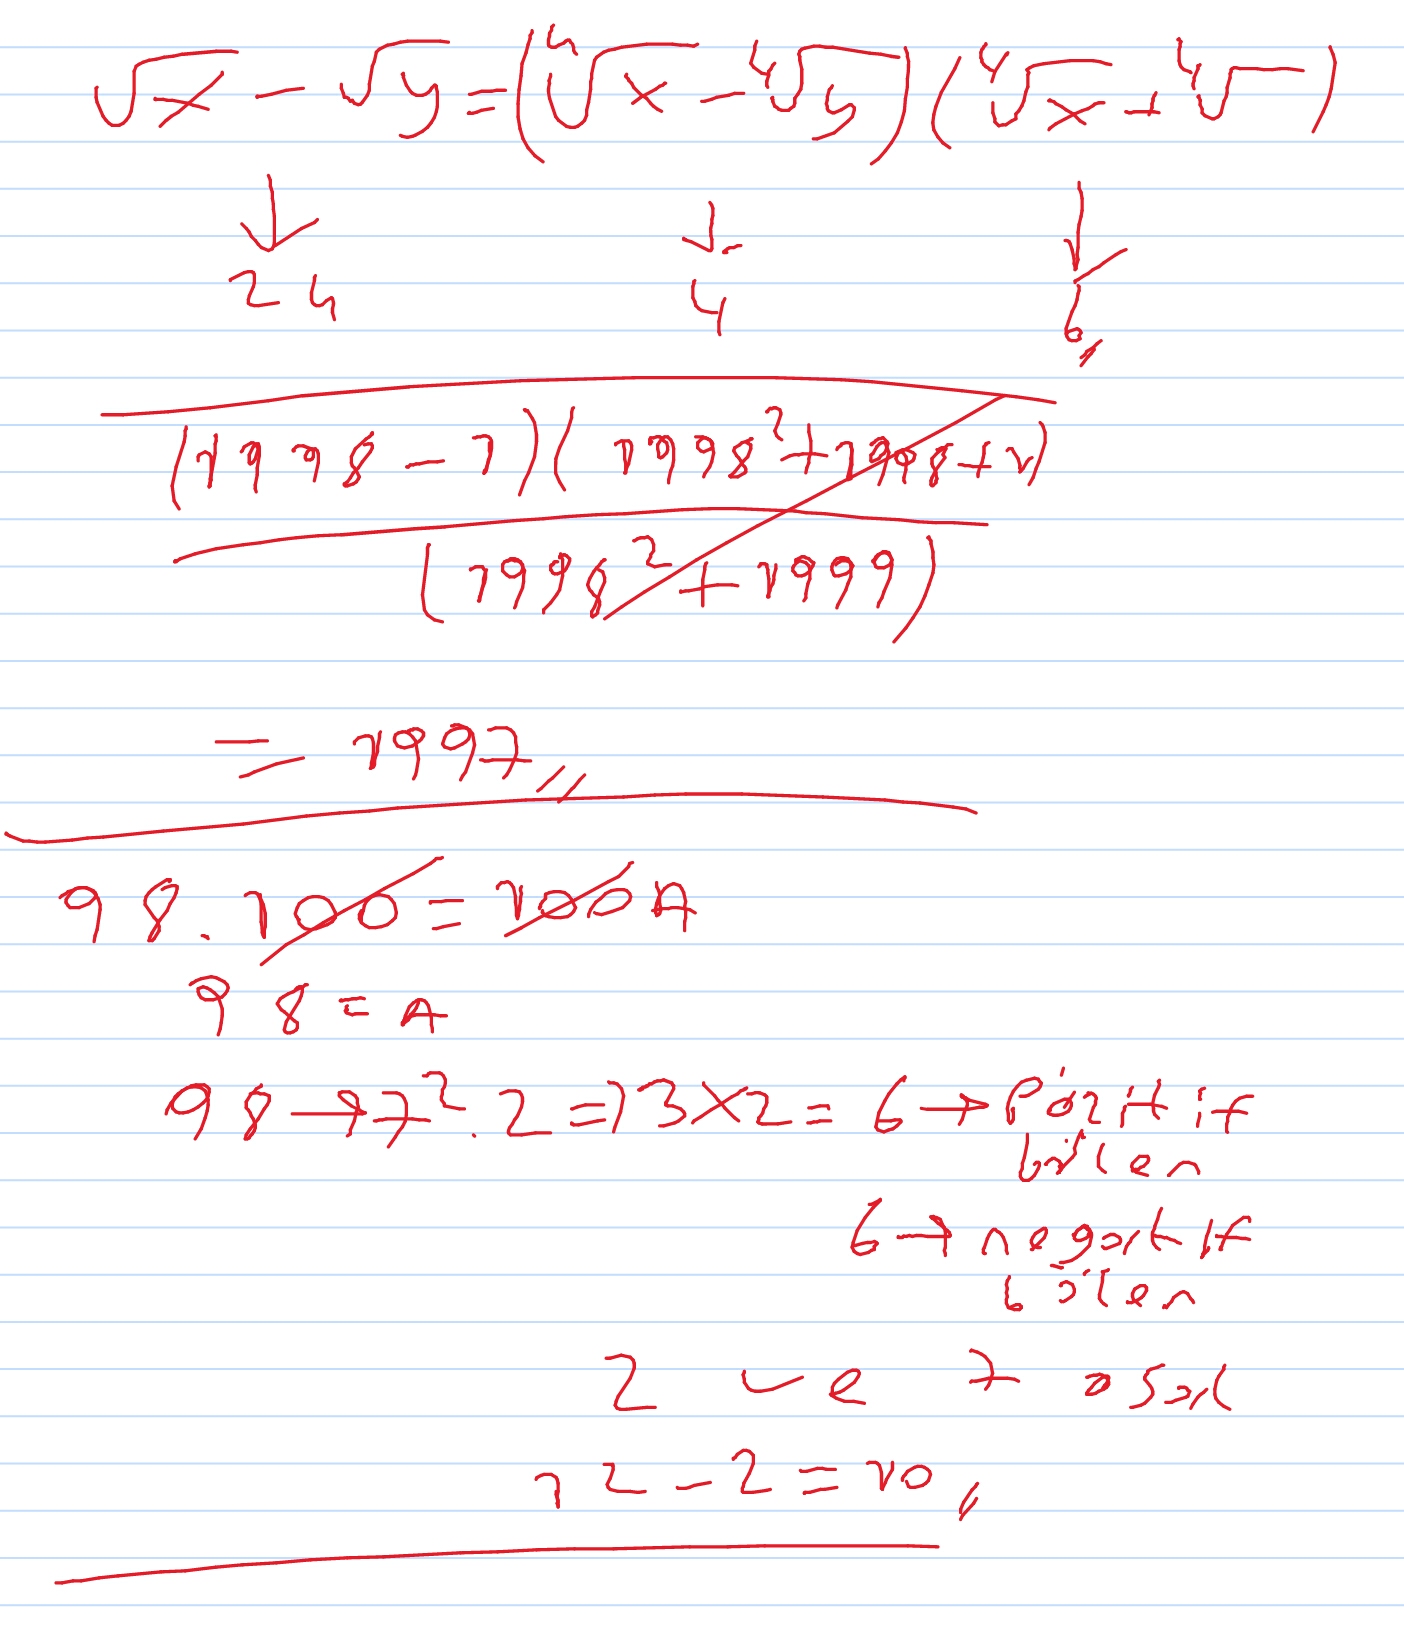 √x - √y = (⁴√x - ⁴√y) (⁴√x + ⁴√ )
↓ ↓ ↓
24 4 6,
(1998 - 1)(1998² + 1998 + 1)
(1998² + 1999)
= 1997 //
98.100 = 100A
98 = A
98 → 7².2 = 3×2 = 6 → pozitif
bölen
6 → negatif
bölen
2 ve 7 asal
12 - 2 = 10 //